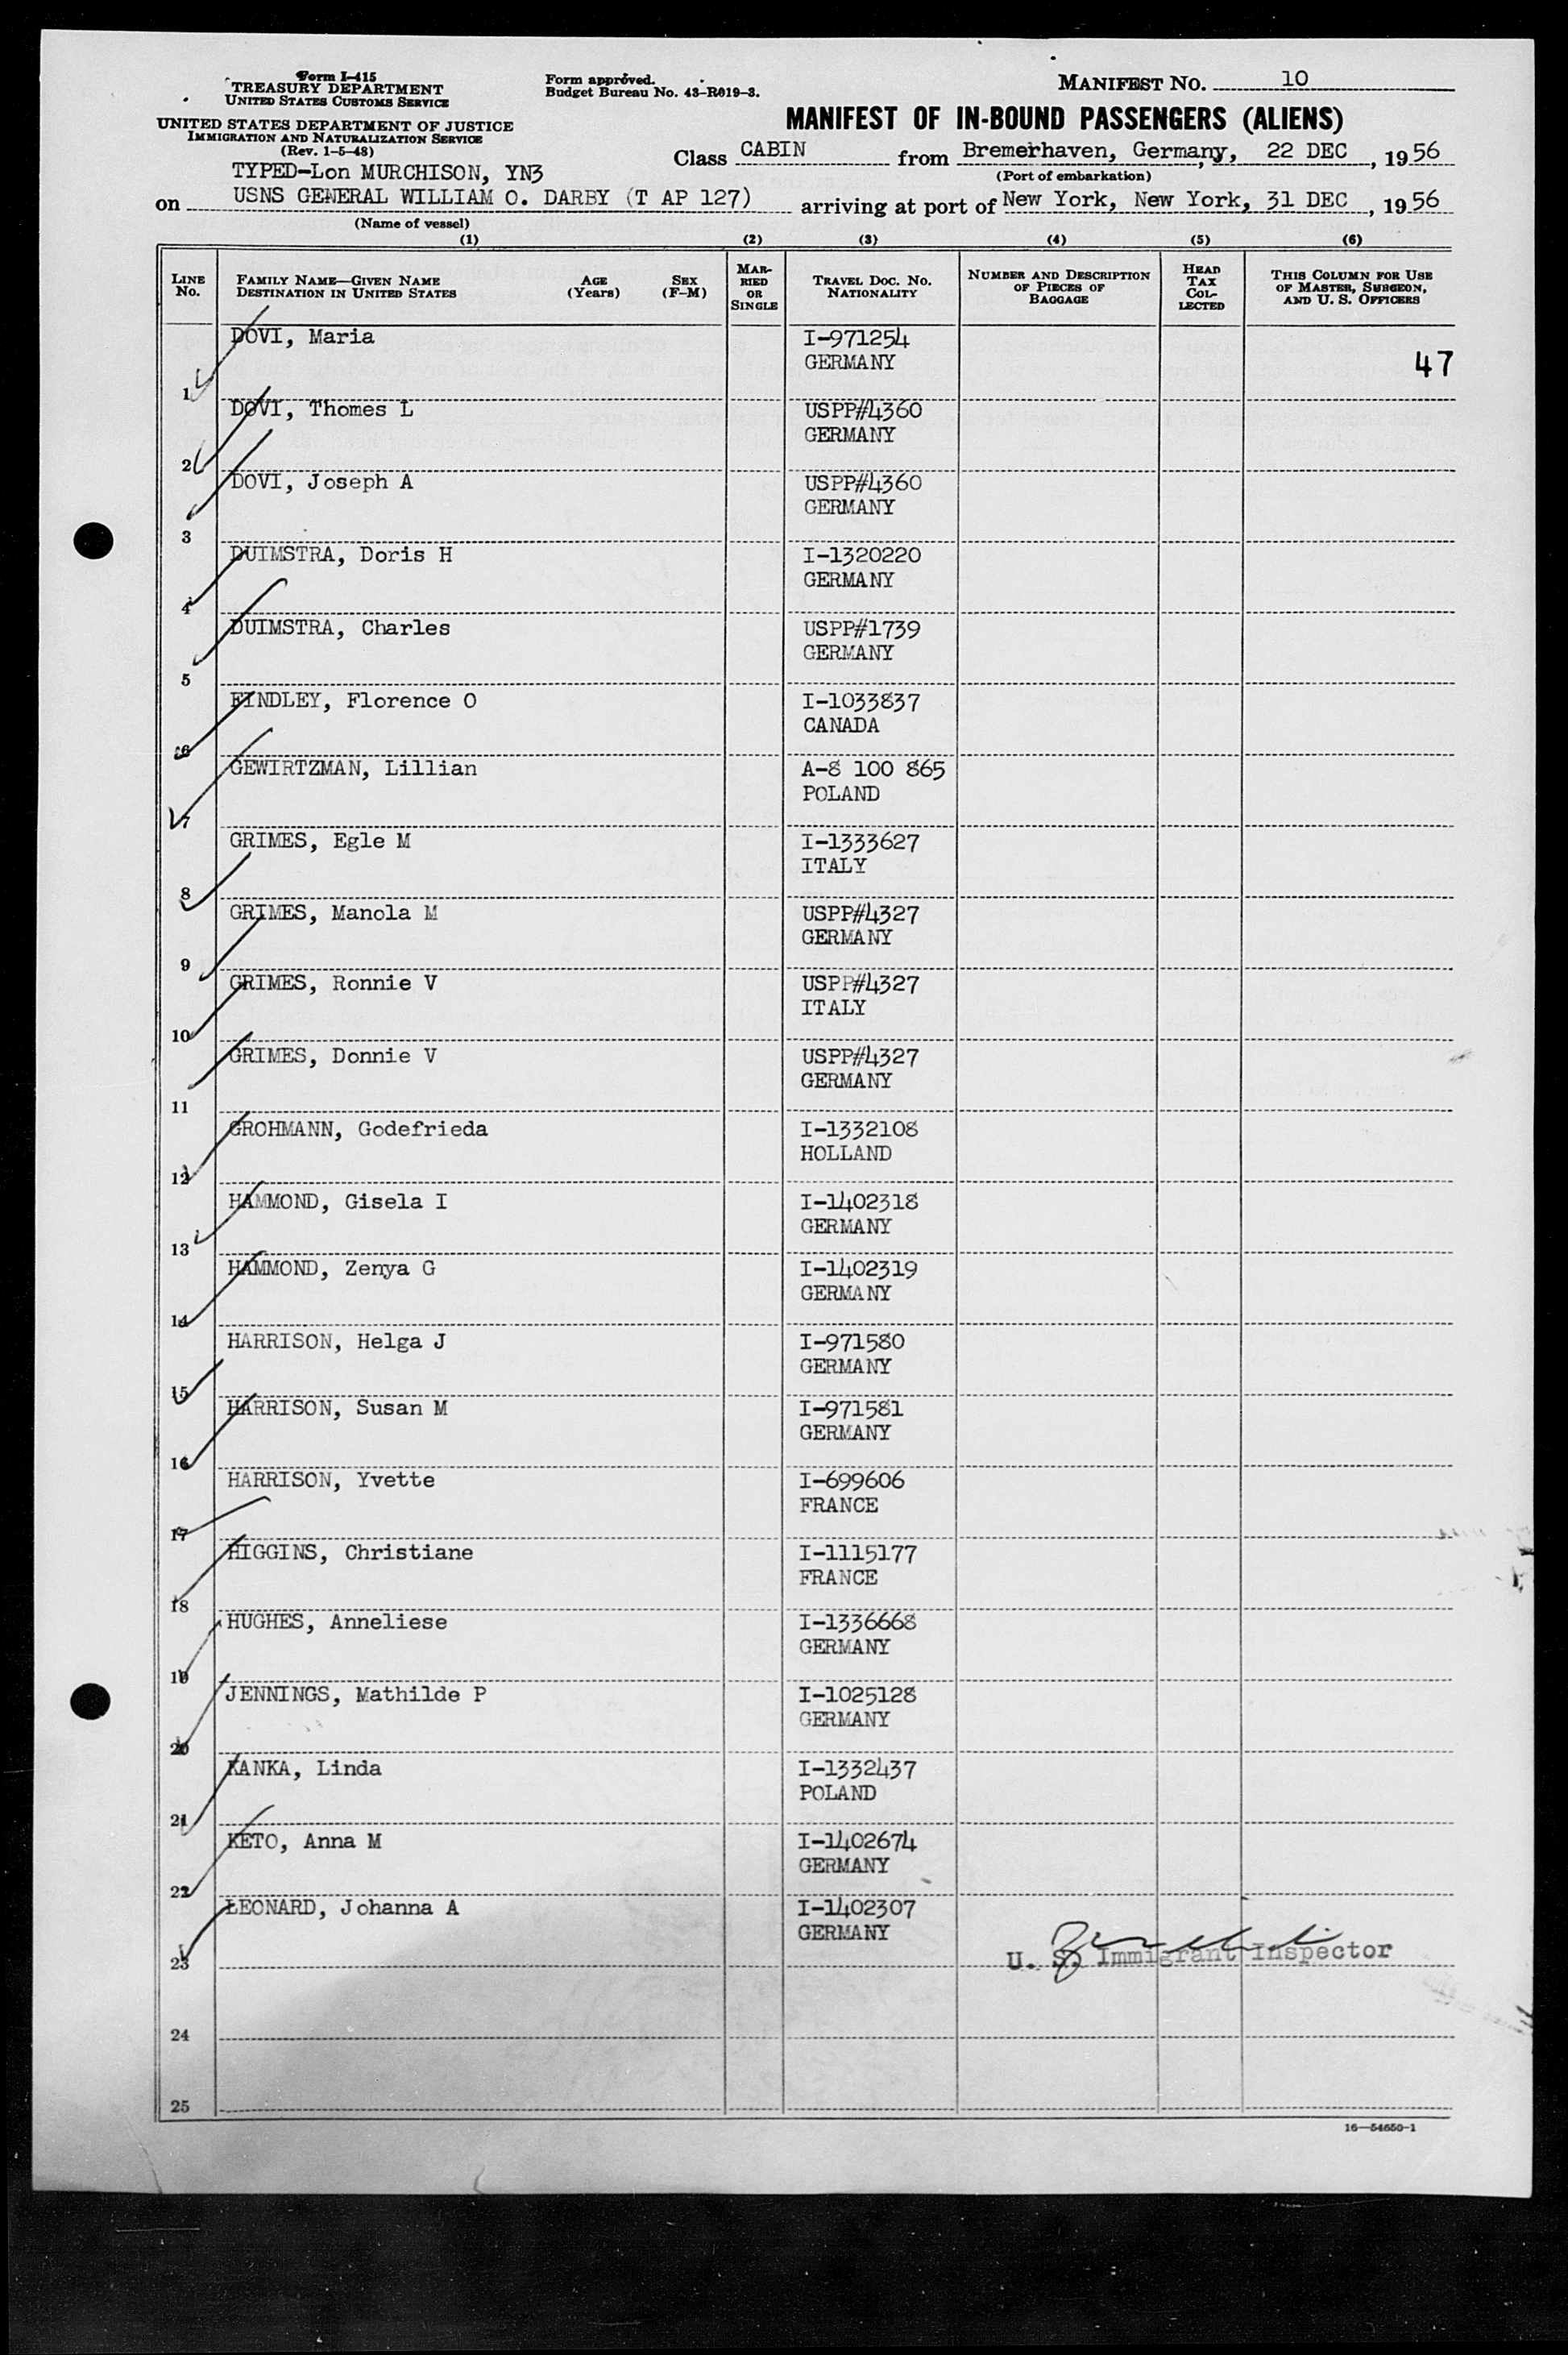 Form I-415
TREASURY DEPARTMENT
UNITED STATES CUSTOMS SERVICE
UNITED STATES DEPARTMENT OF JUSTICE
IMMIGRATION AND NATURALIZATION SERVICE
(Rev. 1-5-48)
Form approved.
Budget Bureau No. 43-R019-3.
MANIFEST NO. 10
MANIFEST OF IN-BOUND PASSENGERS (ALIENS)
Class CABIN from Bremerhaven, Germany, 22 DEC, 1956
(Port of embarkation)
TYPED-Lon MURCHISON, YN3
on USNS GENERAL WILLIAM O. DARBY (T AP 127) arriving at port of New York, New York, 31 DEC, 1956
(Name of vessel)
(1) (2) (3) (4) (5) (6)
LINE No. FAMILY NAME—GIVEN NAME DESTINATION IN UNITED STATES AGE (Years) SEX (F-M) MARRIED OR SINGLE TRAVEL DOC. NO. NATIONALITY NUMBER AND DESCRIPTION OF PIECES OF BAGGAGE HEAD TAX COLLECTED THIS COLUMN FOR USE OF MASTER, SURGEON, AND U. S. OFFICERS
DOVI, Maria I-971254
GERMANY 47
1
DOVI, Thomes L USPP#4360
GERMANY
2
DOVI, Joseph A USPP#4360
GERMANY
3
DUIMSTRA, Doris H I-1320220
GERMANY
4
DUIMSTRA, Charles USPP#1739
GERMANY
5
FINDLEY, Florence O I-1033837
CANADA
6
GEWIRTZMAN, Lillian A-8 100 865
POLAND
7
GRIMES, Egle M I-1333627
ITALY
8
GRIMES, Manola M USPP#4327
GERMANY
9
GRIMES, Ronnie V USPP#4327
ITALY
10
GRIMES, Donnie V USPP#4327
GERMANY
11
GROHMANN, Godefrieda I-1332108
HOLLAND
12
HAMMOND, Gisela I I-1402318
GERMANY
13
HAMMOND, Zenya G I-1402319
GERMANY
14
HARRISON, Helga J I-971580
GERMANY
15
HARRISON, Susan M I-971581
GERMANY
16
HARRISON, Yvette I-699606
FRANCE
17
HIGGINS, Christiane I-1115177
FRANCE
18
HUGHES, Anneliese I-1336668
GERMANY
19
JENNINGS, Mathilde P I-1025128
GERMANY
20
KANKA, Linda I-1332437
POLAND
21
KETO, Anna M I-1402674
GERMANY
22
LEONARD, Johanna A I-1402307
GERMANY
U. S. Immigrant Inspector
23
24
25
16—54650-1